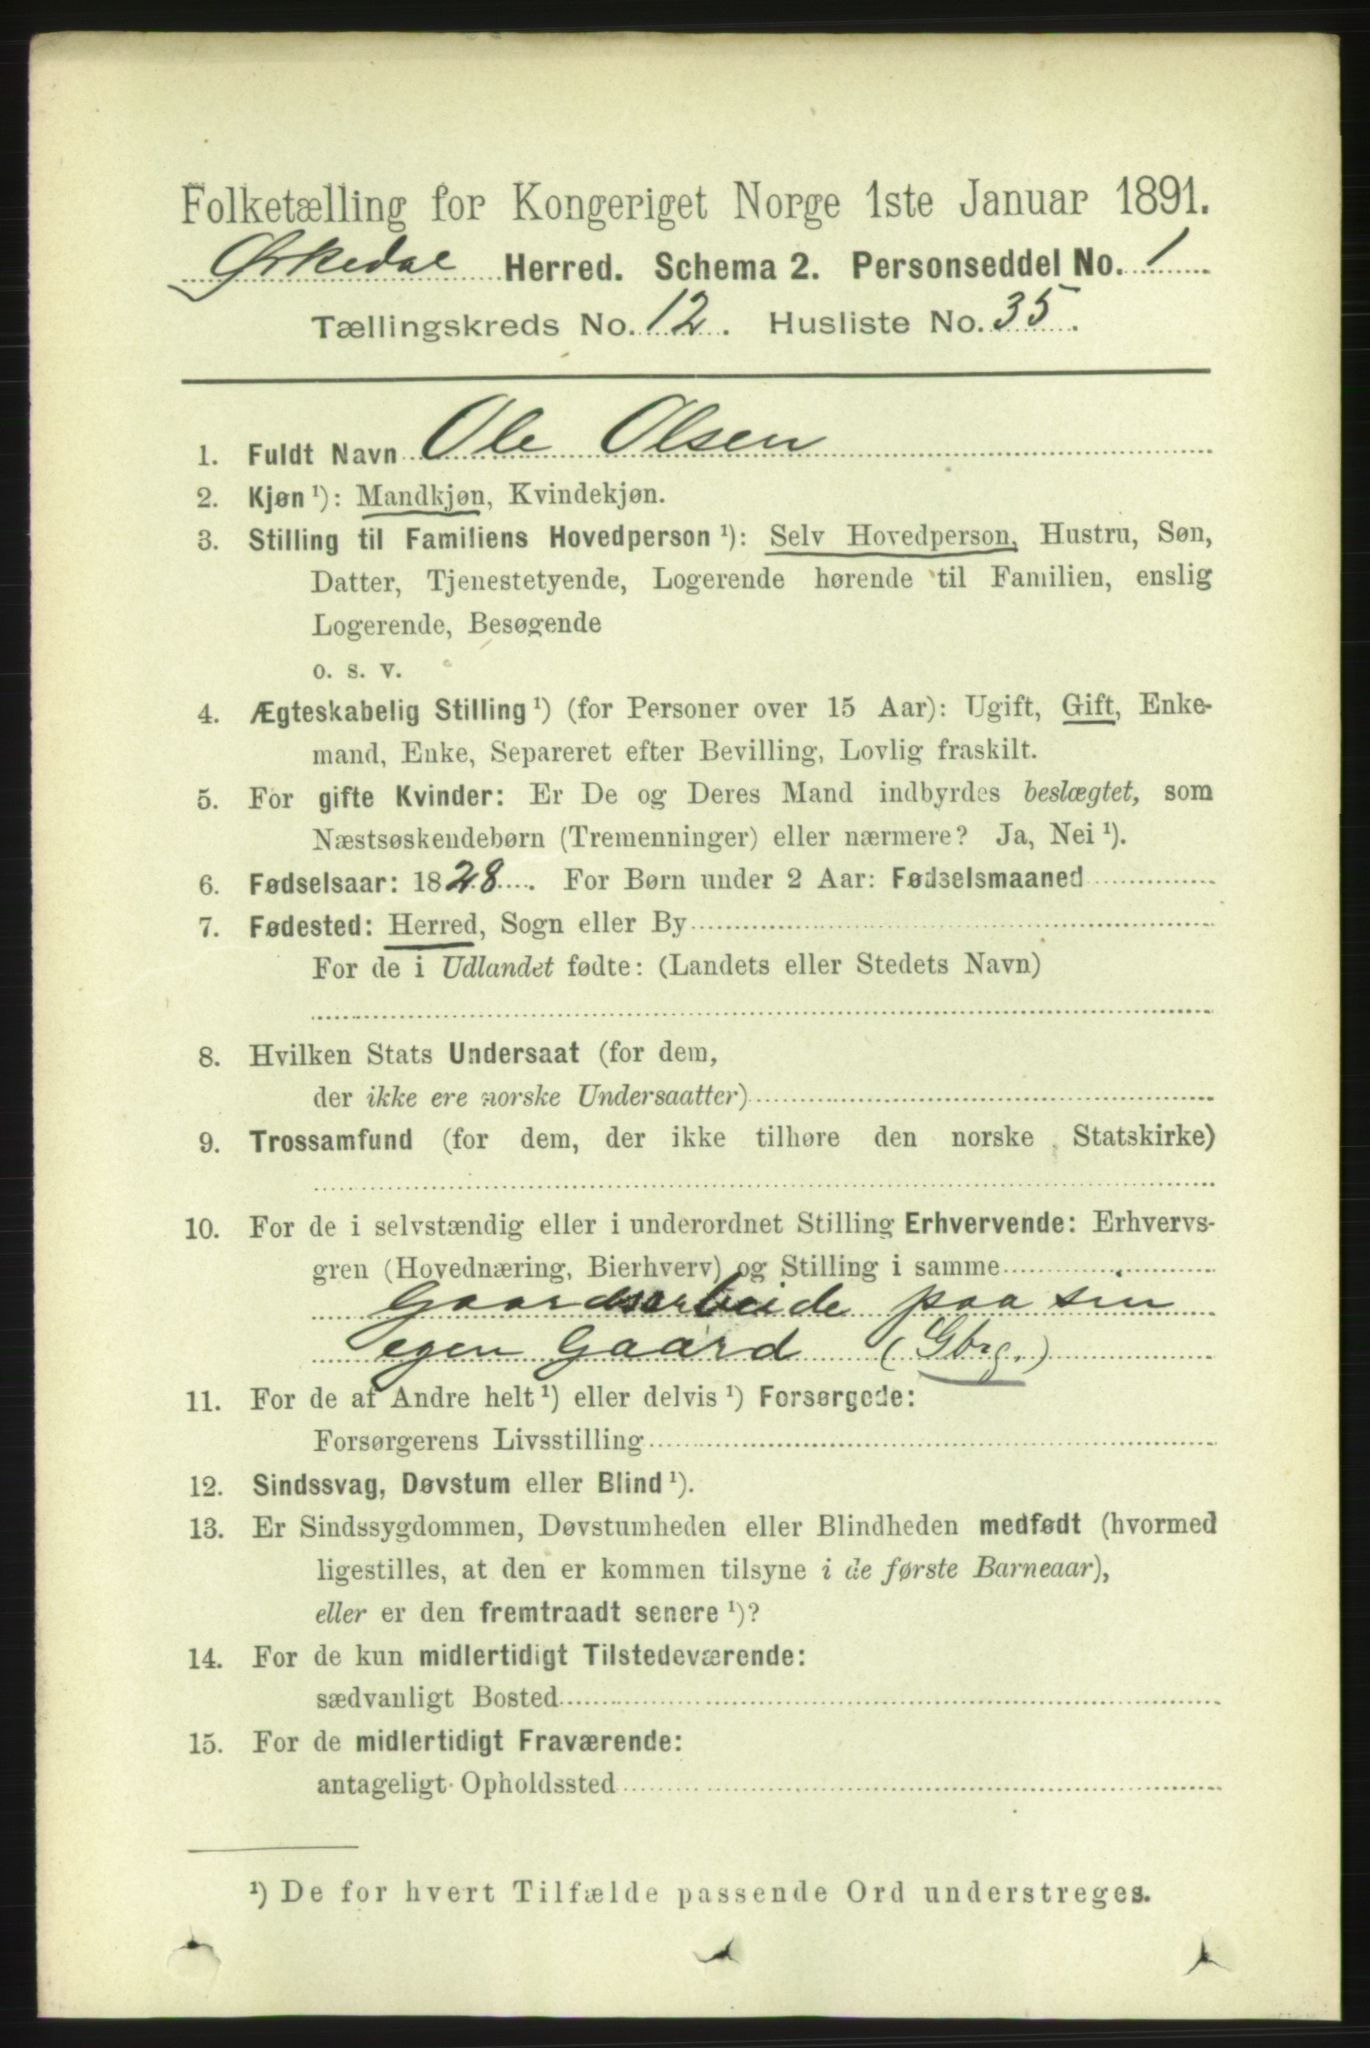 Folketælling for Kongeriget Norge 1ste Januar 1891.
Ørkedal Herred. Schema 2. Personseddel No. 1
Tællingskreds No. 12. Husliste No. 35.
1. Fuldt Navn Ole Olsen
2. Kjøn ¹): Mandkjøn, Kvindekjøn.
3. Stilling til Familiens Hovedperson ¹): Selv Hovedperson, Hustru, Søn,
Datter, Tjenestetyende, Logerende hørende til Familien, enslig
Logerende, Besøgende
o. s. v.
4. Ægteskabelig Stilling ¹) (for Personer over 15 Aar): Ugift, Gift, Enke-
mand, Enke, Separeret efter Bevilling, Lovlig fraskilt.
5. For gifte Kvinder: Er De og Deres Mand indbyrdes beslægtet, som
Næstsøskendebørn (Tremenninger) eller nærmere? Ja, Nei ¹).
6. Fødselsaar: 1828. For Børn under 2 Aar: Fødselsmaaned
7. Fødested: Herred, Sogn eller By
For de i Udlandet fødte: (Landets eller Stedets Navn)
8. Hvilken Stats Undersaat (for dem,
der ikke ere norske Undersaatter)
9. Trossamfund (for dem, der ikke tilhøre den norske Statskirke)
10. For de i selvstændig eller i underordnet Stilling Erhvervende: Erhvervs-
gren (Hovednæring, Bierhverv) og Stilling i samme
Gaardsarbeide paa sin
egen Gaard (Gbrg.)
11. For de af Andre helt ¹) eller delvis ¹) Forsørgede:
Forsørgerens Livsstilling
12. Sindssvag, Døvstum eller Blind ¹).
13. Er Sindssygdommen, Døvstumheden eller Blindheden medfødt (hvormed
ligestilles, at den er kommen tilsyne i de første Barneaar),
eller er den fremtraadt senere ¹)?
14. For de kun midlertidigt Tilstedeværende:
sædvanligt Bosted
15. For de midlertidigt Fraværende:
antageligt Opholdssted
¹) De for hvert Tilfælde passende Ord understreges.